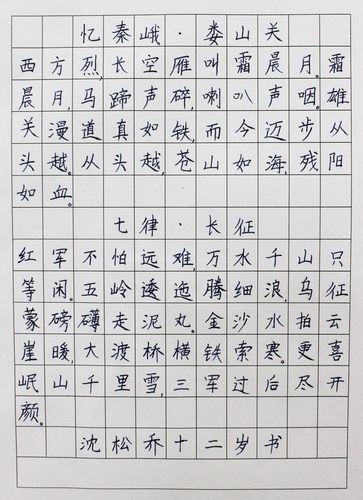 忆秦峨·娄山关
西方烈,长空雁叫霜晨月。霜
晨月,马蹄声碎,喇叭声咽。雄
关漫道真如铁,而今迈步从
头越。从头越,苍山如海,残阳
如血。
七律·长征
红军不怕远难,万水千山只
等闲。五岭逶迤腾细浪,乌征
蒙磅礴走泥丸。金沙水拍云
崖暖,大渡桥横铁索寒。更喜
岷山千里雪,三军过后尽开
颜。
沈松乔十二岁书